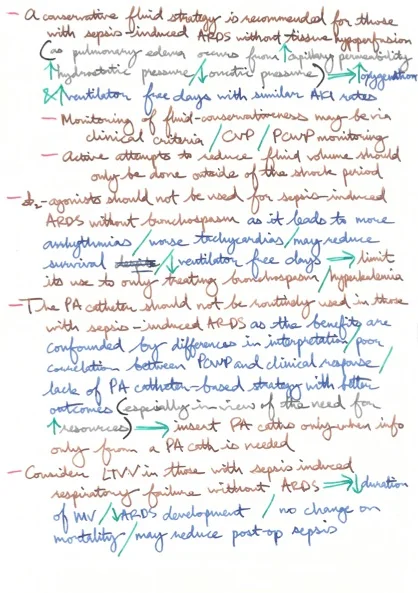 - A conservative fluid strategy is recommended for those
with sepsis-induced ARDS without tissue hypoperfusion
(as pulmonary edema occurs from ↑capillary permeability
↑hydrostatic pressure/↓oncotic pressure) → ↑oxygenation
&↑ventilator free days with similar AKI rates
- Monitoring of fluid-conservativeness may be via
clinical criteria/CVP/PCWP monitoring
- Active attempts to reduce fluid volume should
only be done outside of the shock period
- β2-agonists should not be used for sepsis-induced
ARDS without bronchospasm as it leads to more
arrhythmias/worse tachycardias/may reduce
survival /↓ventilator free days → limit
its use to only treating bronchospasm/hyperkalemia
- The PA catheter should not be routinely used in those
with sepsis-induced ARDS as the benefits are
confounded by differences in interpretation/poor
correlation between PCWP and clinical response/
lack of PA catheter-based strategy with better
outcomes (especially in view of the need for
↑resources) → insert PA caths only when info
only from a PA cath is needed
- Consider LTVV in those with sepsis induced
respiratory failure without ARDS → ↓duration
of MV/↓ARDS development/no change on
mortality/may reduce post-op sepsis